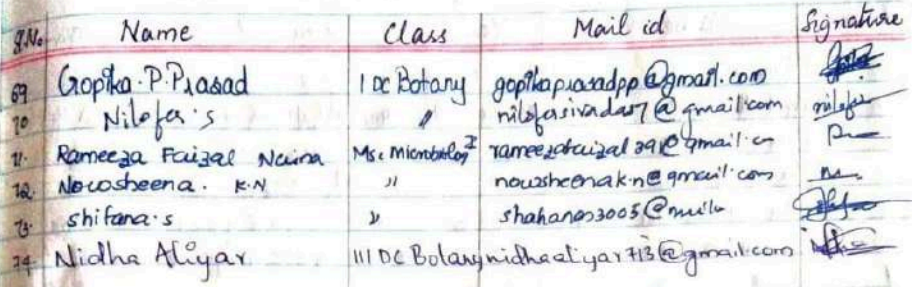 S.No Name Class Mail id Signature
69 Gopika.P.Prasad I DC Botany gopikaprasadpp@gmail.com
70 Nilofer's " nilofersivadas7@gmail.com nilofer
71. Rameeza Faizal Naina Msc Microbiology I rameezafaizal391@gmail.cn
72. Nowsheena. K.N " nowsheenak.n@gmail.com
73. shifana.s " shahanas3005@
74 Nidha Aliyar III DC Botany nidhaaliyar713@gmail.com